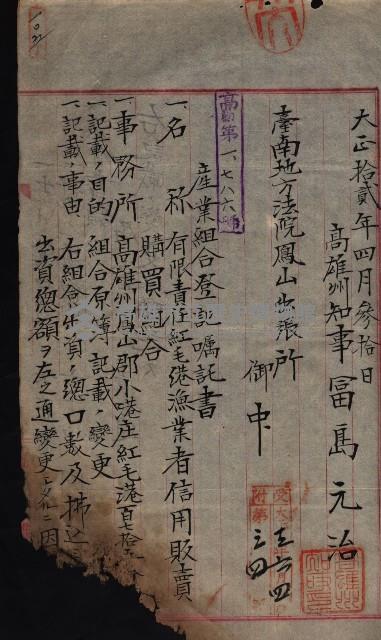 大正拾貳年四月參拾日
高雄州知事富島元治
臺南地方法院鳳山出張所
御中
高第一、七八六號
產業組合登記囑託書
一、名稱 有限責任紅毛港漁業者信用販賣
購買組合
一、事務所 高雄州鳳山郡小港庄紅毛港百七拾
一、記載ノ目的 組合原簿記載ノ變更
一、記載ノ事由 右組合出資ノ總口數及拂込
出資總額ヲ左之通變更シタルニ因